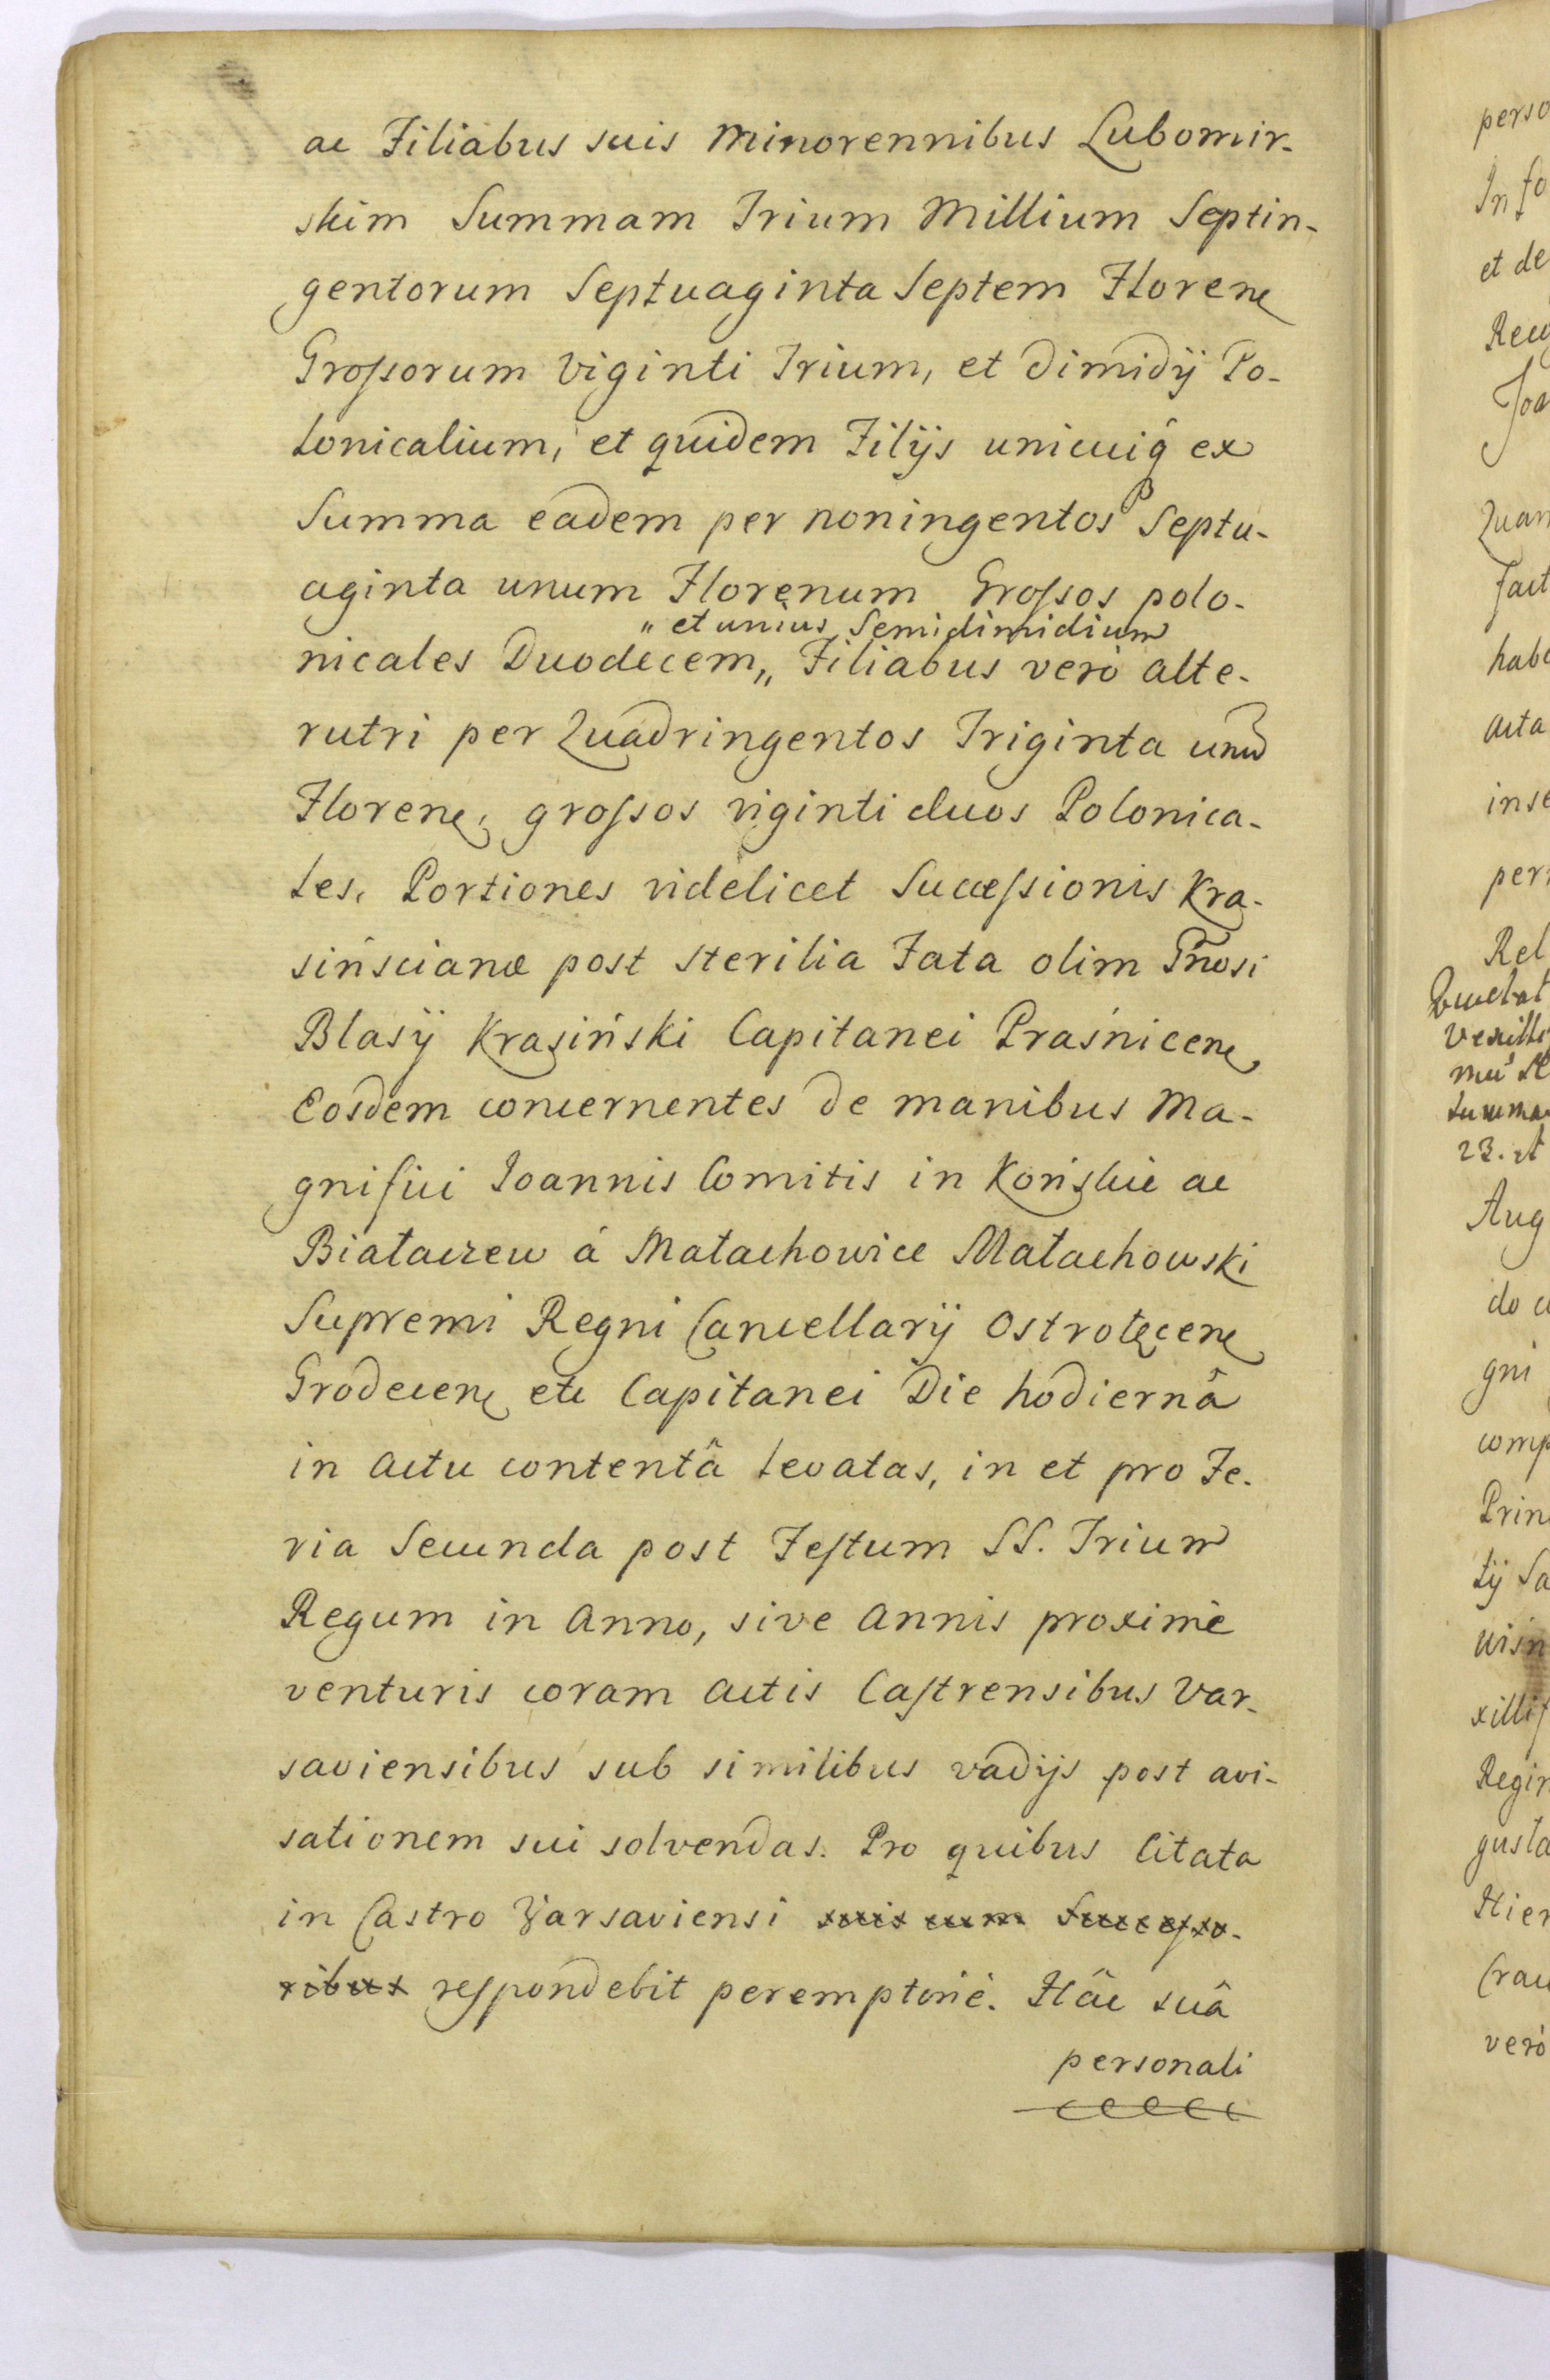 ac Filiabus suis Minorennibus Lubomir-
skim Summam Trium Millium Septin-
gentorum Septuaginta Septem Floren
Grossorum Viginti Trium, et Dimidij Po-
lonicalium, et quidem Filijs unicuiq̂ ex
Summa eadem per noningentos Septu-
aginta unum Florenum Grossos polo-
„ et unius Semidimidium
nicales Duodecem„ Filiabus verò alte-
rutri per Quadringentos Triginta unũ
Floren, grossos viginti duos Polonica-
les, Portiones videlicet Successionis Kra-
sińscianæ post sterilia Fata olim Gñosi
Blasij Krasiński Capitanei Praśnicen
Eosdem concernentes de manibus Ma-
gnifici Joannis Comitis in Końskie ac
Białaczew á Małachowice Małachowski
Supremi Regni Cancellarij Ostrołęcen
Grodecen etc Capitanei Die hodiernâ
in actu contentâ levatas, in et pro Fe-
ria Secunda post Festum SS. Trium
Regum in Anno, sive Annis proximè
venturis coram Actis Castrensibus Var-
saviensibus sub similibus vadijs post avi-
sationem sui solvendas. Pro quibus Citata
in Castro Varsaviensi suis cum Successo-
ribus respondebit peremptoriè. Hâc suâ
personali
perso
In fo
et de
Joa
Quan
habe
acta
inse
per
Rel
23. et
Aug
gni
comp
Prin
Regin
gusta
Hier
verò